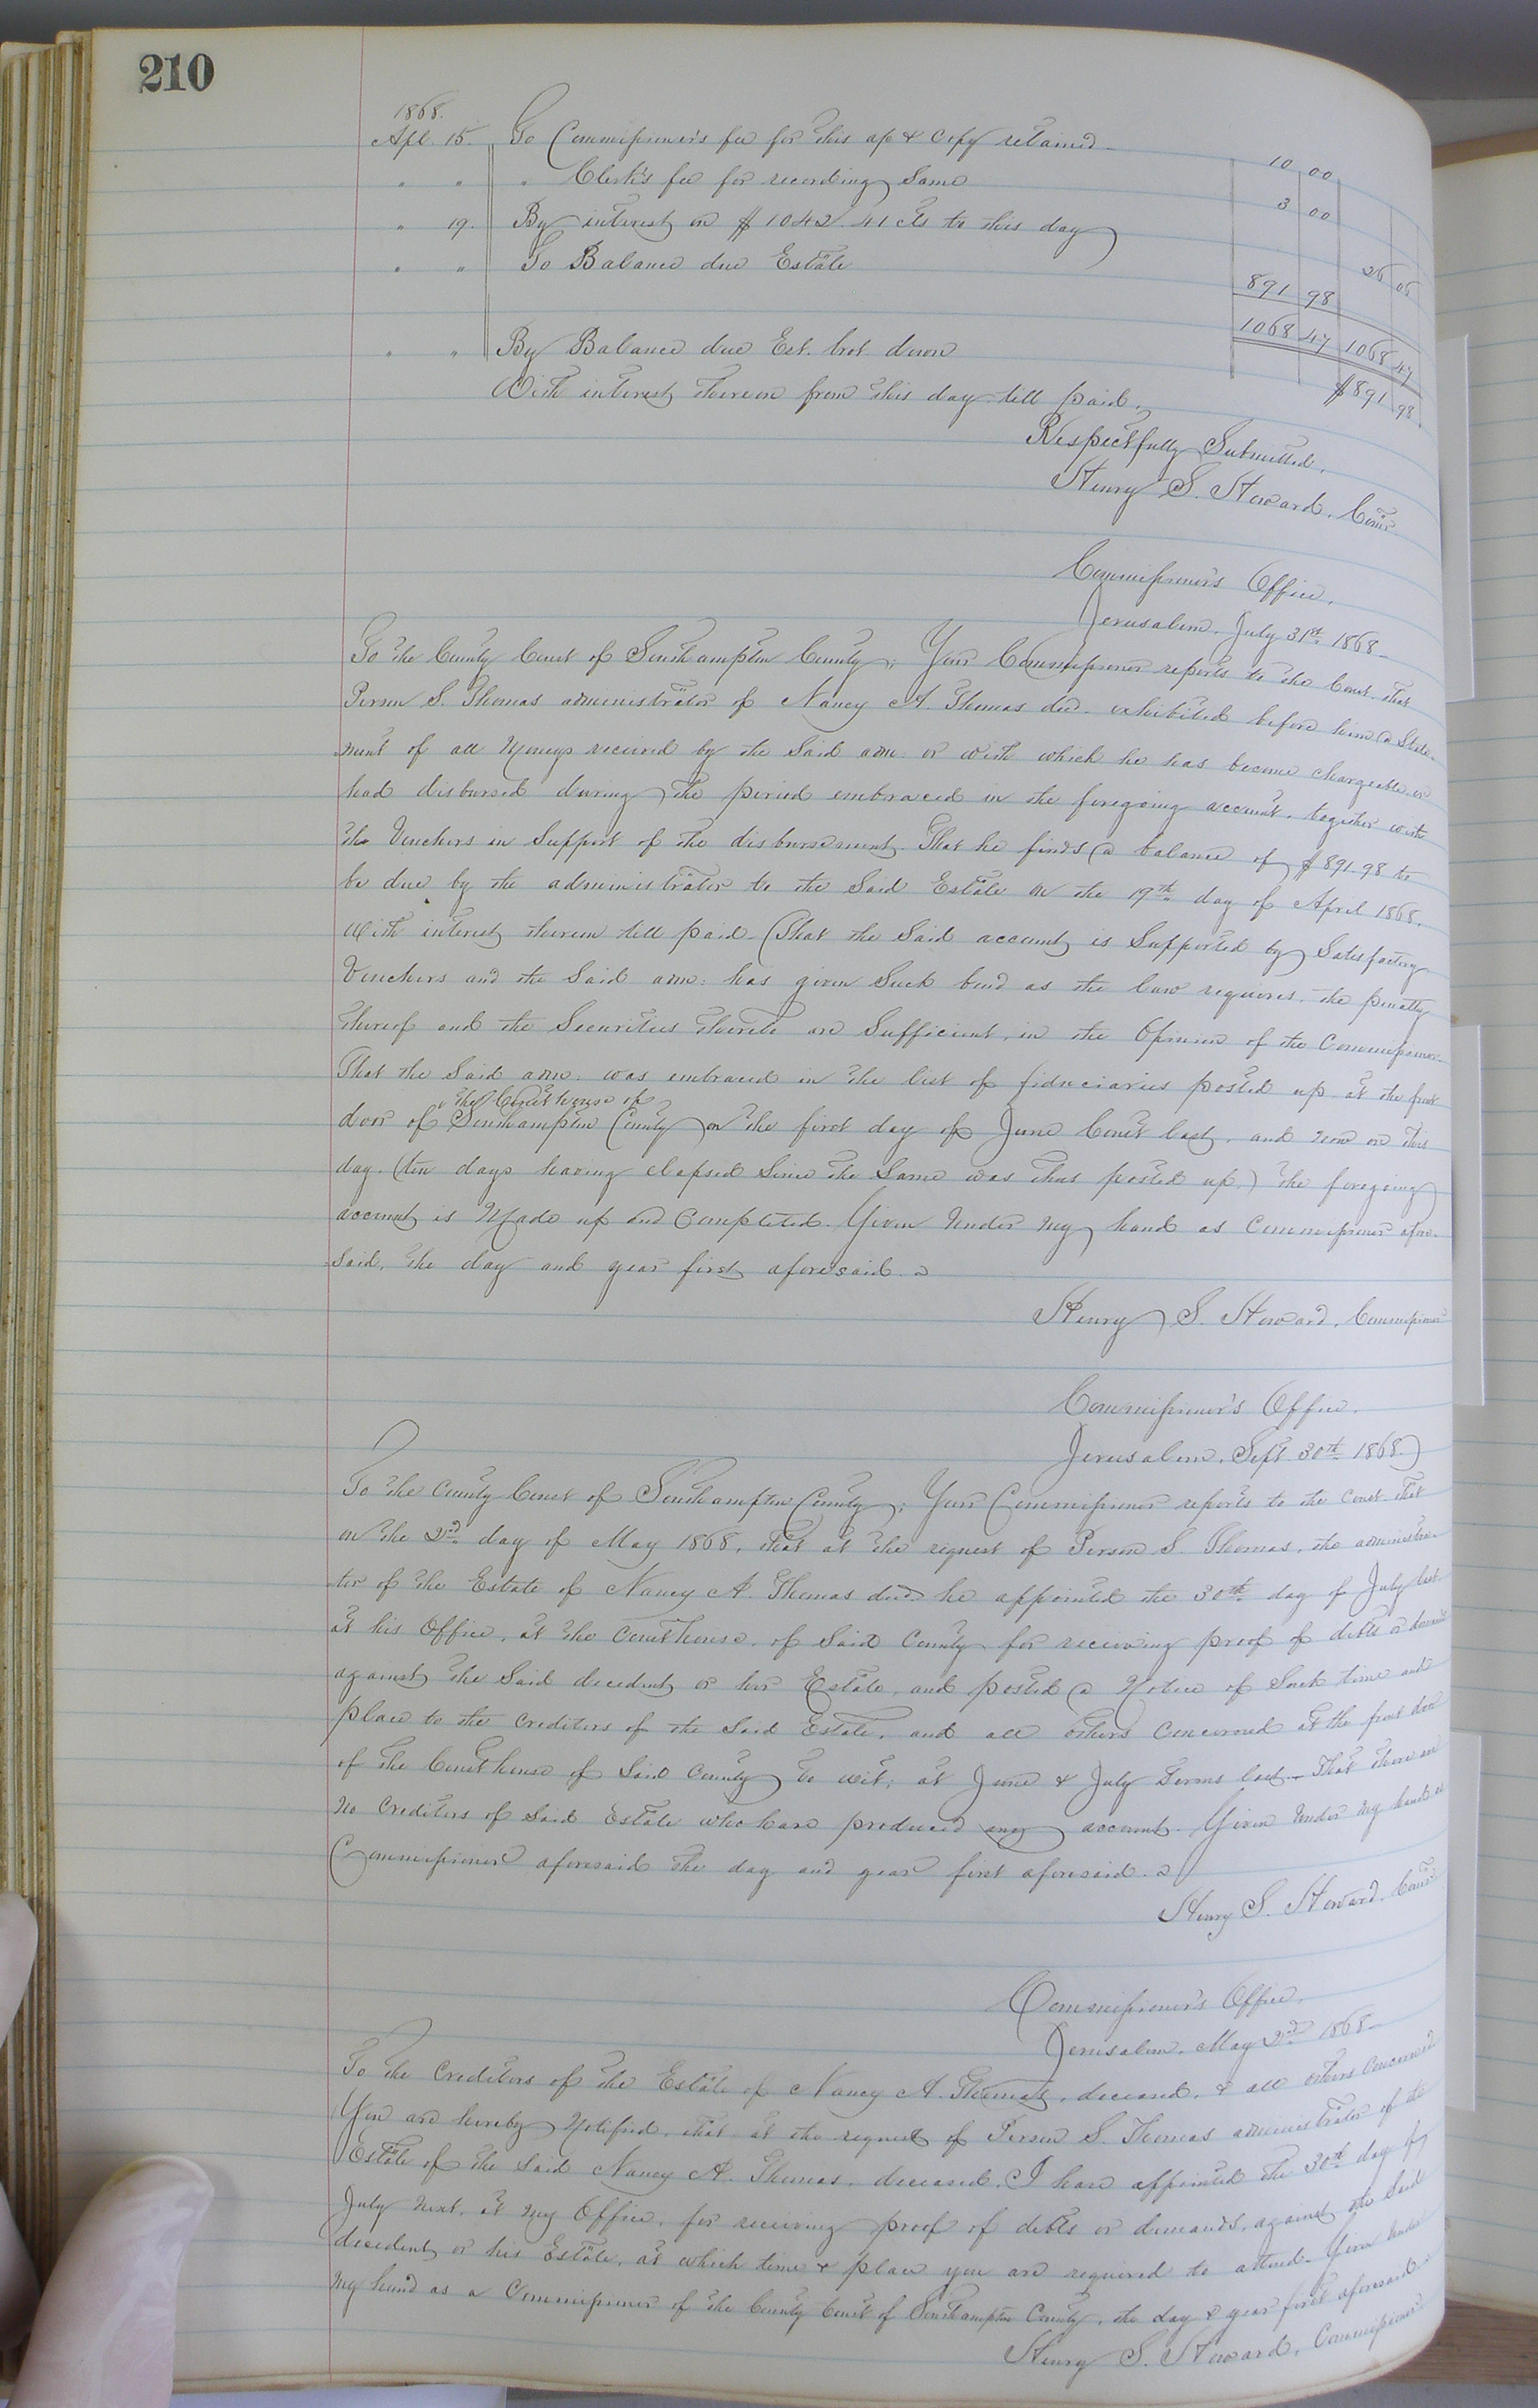 210
1868.
Apl. 15. To Commissioner's fee for this a/c & Copy retained 10 00
" " " Clerk's fee for recording Same 3 00
" 19. By interest on $1042.41 cts to this day 26 06
" " To Balance due Estate 891 98
1068 47 1068 47
" " By Balance due Est. brot down $891 98
With interest thereon from this day till paid.
Respectfully Submitted,
Henry S. Howard, Comr
Commissioner's Office,
Jerusalem, July 31st 1868
To the County Court of Southampton County; Your Commissioner reports to the Court that
Person S. Thomas administrator of Nancy A. Thomas decd. exhibited before him a State-
-ment of all Moneys received by the Said adm: or with which he has become chargeable or
had disbursed during the period embraced in the foregoing account, together with
the Vouchers in Support of the disbursement. That he finds a balance of $891.98 to
be due by the administrator to the Said Estate on the 19th day of April 1868,
With interest thereon till paid. That the Said account is Supported by Satisfactory
Vouchers and the Said adm: has given Such bond as the law requires, the penalty
thereof and the Securities thereto are Sufficient, in the Opinion of the Commissioner
That the Said adm: was embraced in the list of fiduciaries posted up at the front
door of the Courthouse of Southampton County on the first day of June Court last, and now on this
day, (ten days having elapsed Since the Same was thus posted up,) the foregoing
account is Made up and Completed. Given Under My hand as Commissioner afore-
-said, the day and year first aforesaid.
Henry S. Howard, Commissioner
Commissioner's Office,
Jerusalem, Sept 30th 1868.
To the County Court of Southampton County; Your Commissioner reports to the Court that
on the 2nd day of May 1868, that at the request of Person S. Thomas, the administra-
-tor of the Estate of Nancy A. Thomas decd. he appointed the 30th day of July last
at his Office, at the Courthouse, of Said County for receiving proof of debts or demands
against the Said decedent or her Estate, and posted a Notice of Such time and
place to the Creditors of the Said Estate, and all others Concerned at the front door
of the Courthouse of Said County to wit; at June & July Terms last. That there are
No Creditors of Said Estate who have produced any account. Given Under My hand as
Commissioner aforesaid the day and year first aforesaid.
Henry S. Howard, Comr
Commissioner's Office,
Jerusalem, May 2nd 1868
To the Creditors of the Estate of Nancy A. Thomas, deceased, & all others Concerned
You are hereby Notified, that at the request of Person S. Thomas administrator of the
Estate of the Said Nancy A. Thomas, deceased, I have appointed the 30th day of
July next, at My Office, for receiving proof of debts or demands, against the Said
decedent, or his Estate, at which time & place you are required to attend. Given under
My hand as a Commissioner of the County Court of Southampton County, the day & year first aforesaid.
Henry S. Howard, Commissioner